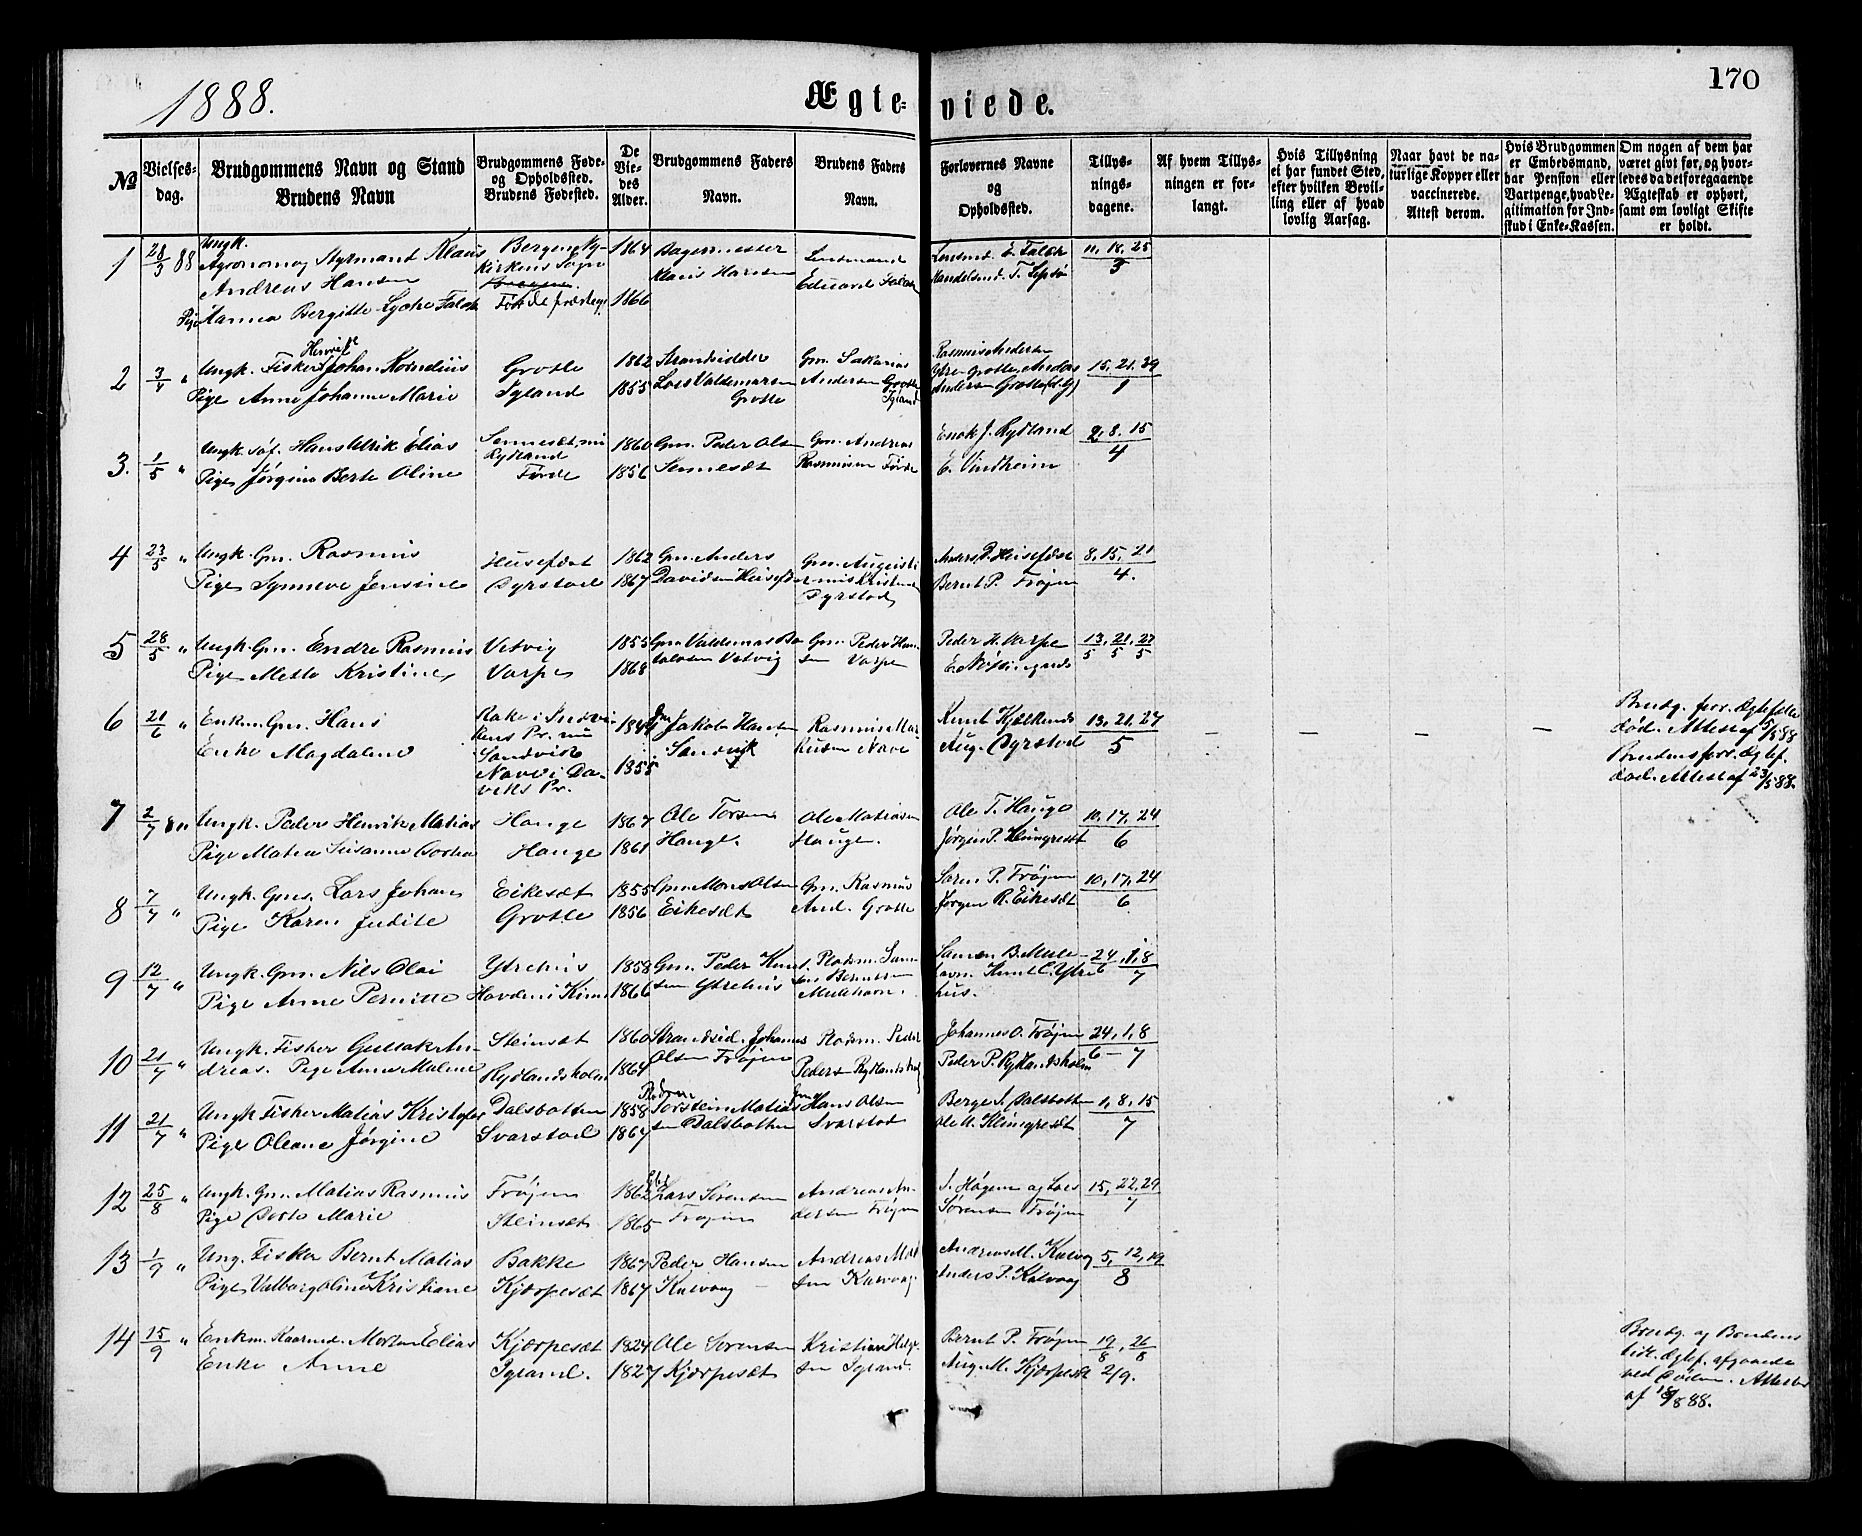 1888.
Ægte-
viede.
170
No
Vielses-
dag.
Brudgommens Navn og Stand
Brudens Navn
Brudgommens Føde-
og Opholdssted.
Brudens Fødested.
De
Vie-
des
Alder.
Brudgommens Faders
Navn.
Brudens Faders
Navn.
Forlovernes Navne
og
Opholdssted.
Tillys-
nings-
dagene.
Af hvem Tillys-
ningen er for-
langt.
Hvis Tillysning
ei har fundet Sted,
efter hvilken Bevil-
ling eller af hvad
lovlig Aarsag.
Naar havt de na-
turlige Kopper eller
vaccinerede.
Attest derom.
Hvis Brudgommen
er Embedsmand,
har Pension eller
Vartpenge, hvad Le-
gitimation for Ind-
skud i Enke-Kassen.
Om nogen af dem har
været givt før, og hvor-
ledes da det foregaaende
Ægteskab er ophørt,
samt om lovligt Skifte
er holdt.
1 28/3 88 Ungk.
Agronom og Styrmand Klaus
Andreas Hansen
Pige Hanna Bergitte Lycke Falck
Bergens Ny-
kirkens Sogn
Førde
1864
1866
Bagermester
Klaus Hansen
Lensmand
Eduard Falck
Lensmd. E. Falck
Handelsmd. T.
11, 18, 25
3
2 3/4 " Ungk. Fisker Henrik Johan Kornelius
Pige Anne Johanne Marie
Grotle
Igland
1862
1855
Strandsidder
Lars Valdemarsen
Grotle
Gm. Sakarias
Andersen Grotle
Igland
Rasmus Andersen
Ytre-Grotle, Andas
Andersen Grotle
15, 21, 29
1
3. 1/5 " Ungk. Hans Ulrik Elias
Pige Jørgine Berte Oline
Sennesæt, nu
Rydland
Førde
1860
1856
Gm. Peder Olsen
Sennesæt
Gm. Andreas
Rasmusen Førde
Enok J. Rydland
E. Vindheim
2, 8, 15
4
4 23/5 " Ungk. Gm. Rasmus
Pige Synneve Jensine
Husefæst
Dyrstad
1862
1867
Gm. Anders
Davidsen Husefæst
Gm. Augusti-
nus Kristensen
Dyrstad
Anders P. Husefæst
Bernt P. Frøjen
8, 15, 21
4.
5 28/5 " Ungk. Gm. Endre Rasmus
Pige Mette Kristine
Vetvig
Varpe
1855
1868
Gm. Valdemar
Vetvig
Gm. Peder Han-
sen Varpe
Peder H. Varpe
13/5, 21/5, 27/5
6 21/6 " Enkm. Gm. Hans
Enke Magdalene
Rake i Indvi-
kens Pr. nu
Sandvik
Nave i Da-
viks Pr.
1844
1855
Gm. Jakob Hansen
Sandvik
Rasmus Mar-
kusen Nave
Knut Hjelkende
Aug. Dyrstad
13, 21, 27
5
– – – –
Brudg. forr. Ægtefelle
død. Attest af 5/5 88
Brudens forr. Ægtef.
død. Attest af 23/5 88.
7 2/7 Ungk. Peder Henrik Matias
Pige Matea Susanne Dortea
Hauge
Hauge
1867
1861
Ole Torsen
Hauge.
Ole Matiasen
Hauge.
Ole T. Hauge
Jørgen P. Heimgresdt
10, 17, 24
6
8 7/7 " Ungk. Gm. Lars Johan
Pige Karen Judite
Eikesæt
Grotle
1855
1856
Gm. Mons Olsen
Eikesæt
Gm. Rasmus
And. Grotle
Søren P. Frøjen
Jørgen R. Eikesæt
10, 17, 24
6
9 12/7 " Ungk. Gm. Nils Olai
Pige Anne Pernille
Ytrehus
Havden i Kinn
1858
1866
Gm. Peder Knut-
sen Ytrehus
Pladsm. Sam-
Berntsen
Mulehavn.
Samson B. Mule-
havn. Knut C. Ytre-
hus.
24/6, 1, 8
7
10 21/7 " Ungk. Fisker Gullak An-
dreas. Pige Anne Malene
Steinsæt
Rydlandsholm
1860
1864
Strandsid. Johannes
Olsen Frøjen
Pladsm. Peder
Pedersen Rydlandsholm
Johannes O. Frøjen
Peder P. Rydlandsholm
24, 1, 8
6 – 7
11 21/7 " Ungk. Fisker Matias Kristofer
Pige Oleane Jørgine
Dalsbotten
Svarstad
1858
1867
Torstein Matias-
sen Dalsbotten
Gm. Hans Olsen
Svarstad
Berge J. Dalsbotten
Ole M. Heimgresdt
1, 8, 15
7
12 25/8 " Ungk. Gm. Matias Rasmus
Pige Dorte Marie
Frøjen
Steinsæt
1862
1865
Lars Sørensen
Frøjen
Andreas An-
dersen Frøjen
J. Høgene og Lars
Sørensen Frøjen
15, 22, 29
7
13 1/9 " Ung. Fisker Bernt Matias
Pige Valborg Oline Kristiane
Bakke
Kjørpesæt
1867
1867
Peder Hansen
Kalvaag
Andreas
Kalvaag
Andreas M. Kalvaag
Anders P. Kalvaag
5, 12, 19
8
14 15/9 " Enkm. Kaarmd. Morten Elias
Enke Anne
Kjørpesæt
Igland.
1824
1827
Ole Sørensen
Kjørpesæt
Kristian Helge-
sen Igland.
Bernt P. Frøjen
Aug. M. Kjørpesæt
19/8, 26/8
2/9.
Brudg. og Brudens
tidl. Ægtef. afgaaede
ved Døden. Attester
af 18/8 88.